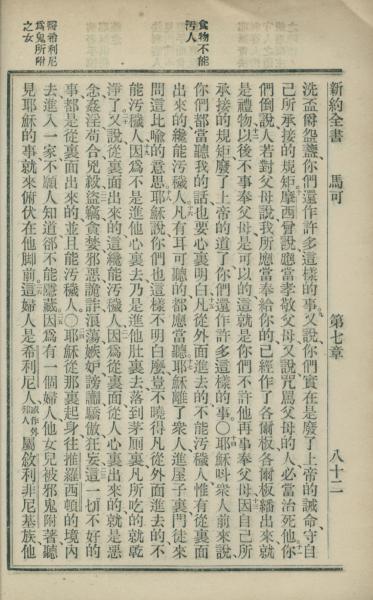 新約全書　馬可　第七章　八十二
洗盃爵盤盞你們還作許多這樣的事又說你們實在是廢了上帝的誡命守自
己所承接的規矩摩西曾說應當孝敬父母又說咒罵父母的人必當治死他你
們倒說人若對父母說我所應當奉給你的已經作了各爾板各爾板繙出來就
是禮物以後不事奉父母是可以的這就是你們不許他再事奉父母因自己所
承接的規矩廢了上帝的道了你們還作許多這樣的事〇耶穌叫衆人前來說
你們都當聽我的話也要心裏明白凡從外面進去的不能汚穢人惟有從裏面
出來的纔能汚穢人凡有耳可聽的都應當聽耶穌離了衆人進屋子裏門徒來
問這比喻的意思耶穌說你們也這樣不明白麼豈不曉得凡從外面進去的不
能汚穢人因爲不是進他心裏去乃是進他肚裏去落到茅厠裏凡所吃的就乾
淨了又說從裏面出來的這纔能汚穢人因爲從裏面從人心裏出來的就是惡
念姦淫苟合兇殺盜竊貪婪邪惡詭詐浪蕩嫉妒謗讟驕傲狂妄這一切不好的
事都是從裏面出來的並且能汚穢人〇耶穌從那裏起身往推羅西頓的境內
去進入一家不願人知道卻不能隱藏因爲有一個婦人他女兒被邪鬼附著聽
見耶穌的事就來俯伏在他脚前這婦人是希利尼人或作外邦人屬敘利非尼基族他
食物不能
汚人
醫希利尼
爲鬼所附
之女